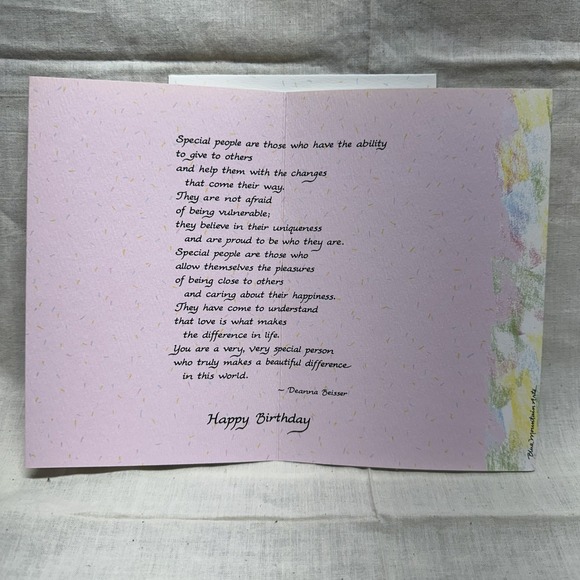 Special people are those who have the ability
to give to others
and help them with the changes
that come their way.
They are not afraid
of being vulnerable;
they believe in their uniqueness
and are proud to be who they are.
Special people are those who
allow themselves the pleasures
of being close to others
and caring about their happiness.
They have come to understand
that love is what makes
the difference in life.
You are a very, very special person
who truly makes a beautiful difference
in this world.
— Deanna Beisser
Happy Birthday
Blue Mountain Arts